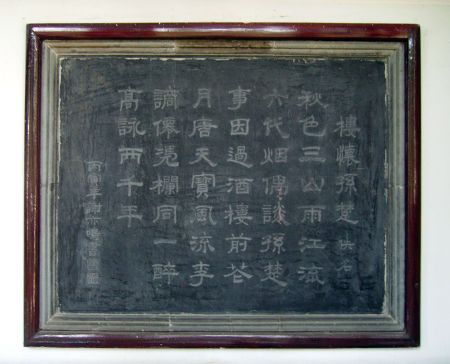 樓懷孫楚 佚名
秋色三山雨江流
六代烟偶談孫楚
事因過酒樓前花
月唐天寶風流李
謫僊凭欄同一醉
高詠兩千年